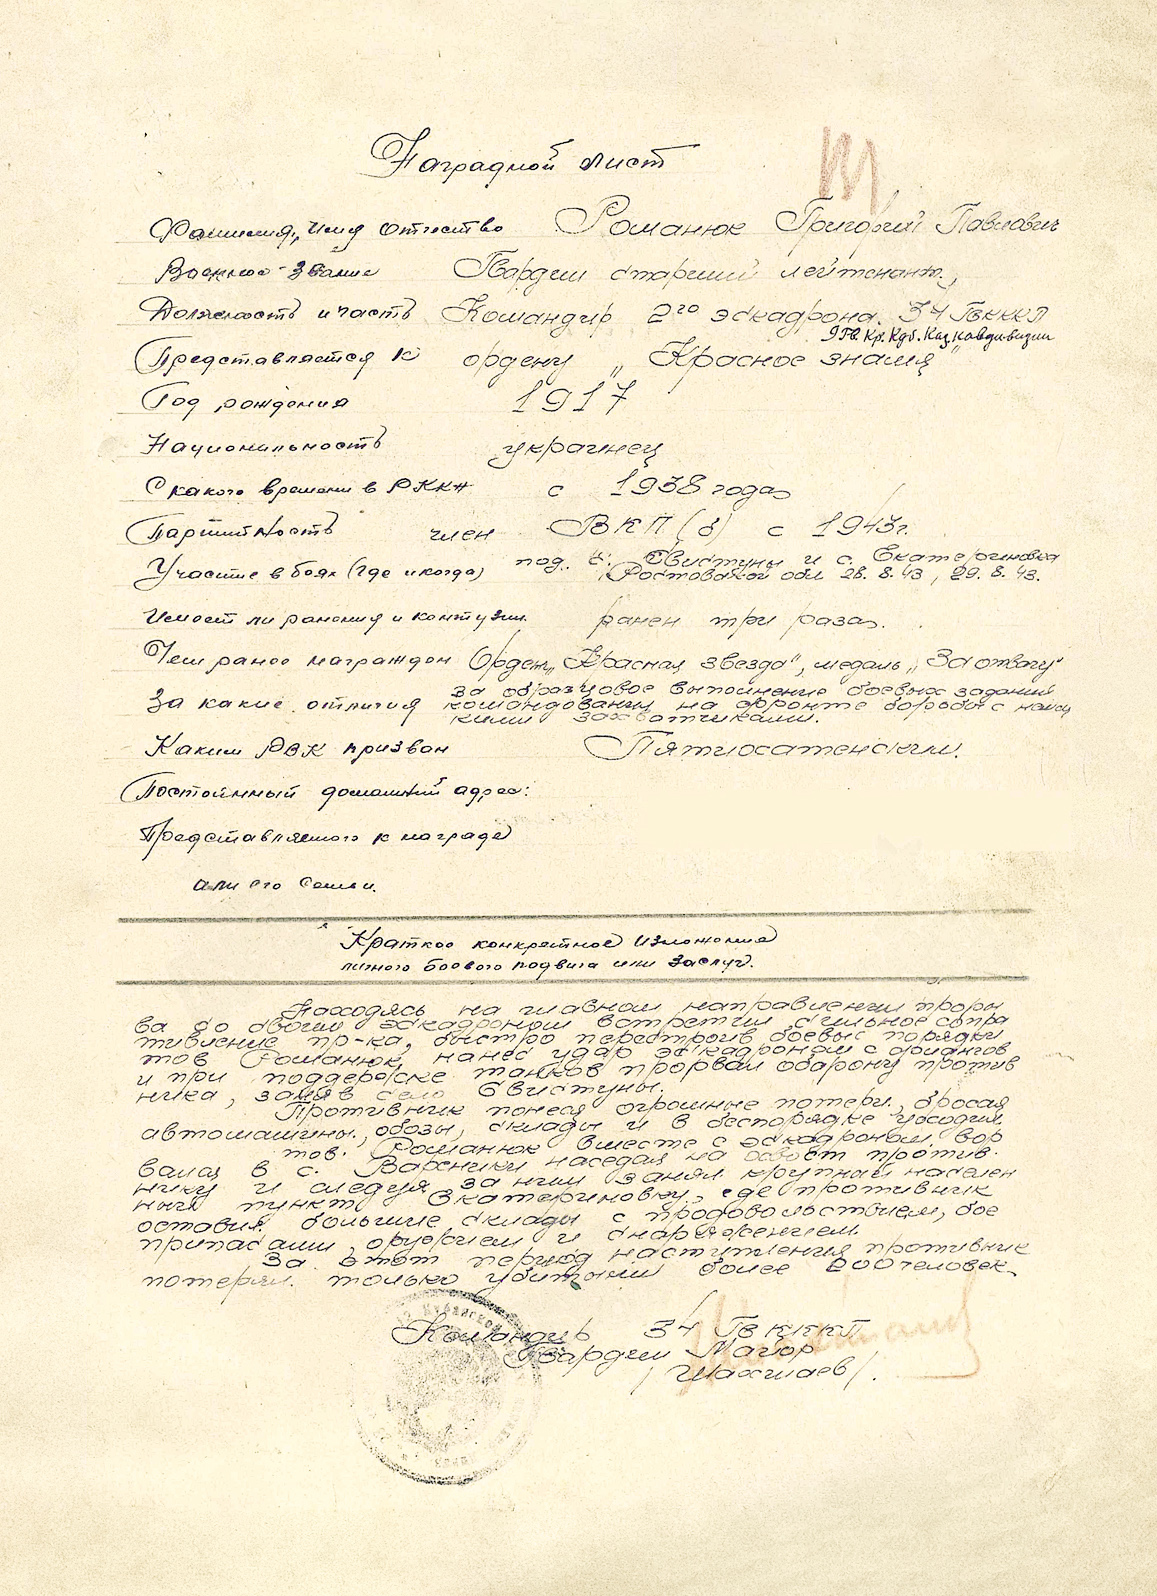 Наградной лист
Фамилия, имя отчество Романюк Григорий Павлович
Военное звание Гвардии старший лейтенант,
Должность и часть Командир 2го эскадрона 34 ГвККкП
9 Гв. Кр. Куб. Каз. кавдивизии
Представляется к ордену „Красное знамя"
Год рождения 1917
Национальность украинец
С какого времени в РККА с 1938 года
Партийность член ВКП(б) с 1943г.
Участие в боях (где и когда) под с: Свистуны и с. Екатериновка
Ростовской обл 28. 8. 43, 29. 8. 43.
Имеет ли ранения и контузии ранен три раза.
Чем ранее награжден Орден „Красная звезда", медаль „За отвагу"
за образцовое выполнение боевых заданий
За какие отличия командования на фронте борьбы с немец
кими захватчиками.
Каким РВК призван Пятихатенским.
Постоянный домашний адрес:
Представляемого к награде
или его семьи.
Краткое конкретное изложение
личного боевого подвига или заслуг.
Находясь на главном направлении проры
ва со своим эскадроном встретил сильное сопро
тивление пр-ка, быстро перестроив боевые порядки
тов Романюк, нанес удар эскадроном с флангов
и при поддержке танков прорвал оборону против
ника, заняв село Свистуны.
Противник понеся огромные потери, бросая
автомашины, обозы, склады и в беспорядке уходил
тов. Романюк вместе с эскадроном вор
вался в с. Вареники наседая на против.
нику и следуя за ним занял крупный населен
ный пункт Екатериновку, где противник
оставил большие склады с продовольствием, бое
припасами, оружием и снаряжением.
За этот период наступления противник
потерял только убитыми более 200 человек.
Командир 34 ГвККкП
Гвардии Майор
/Шахмаев/.